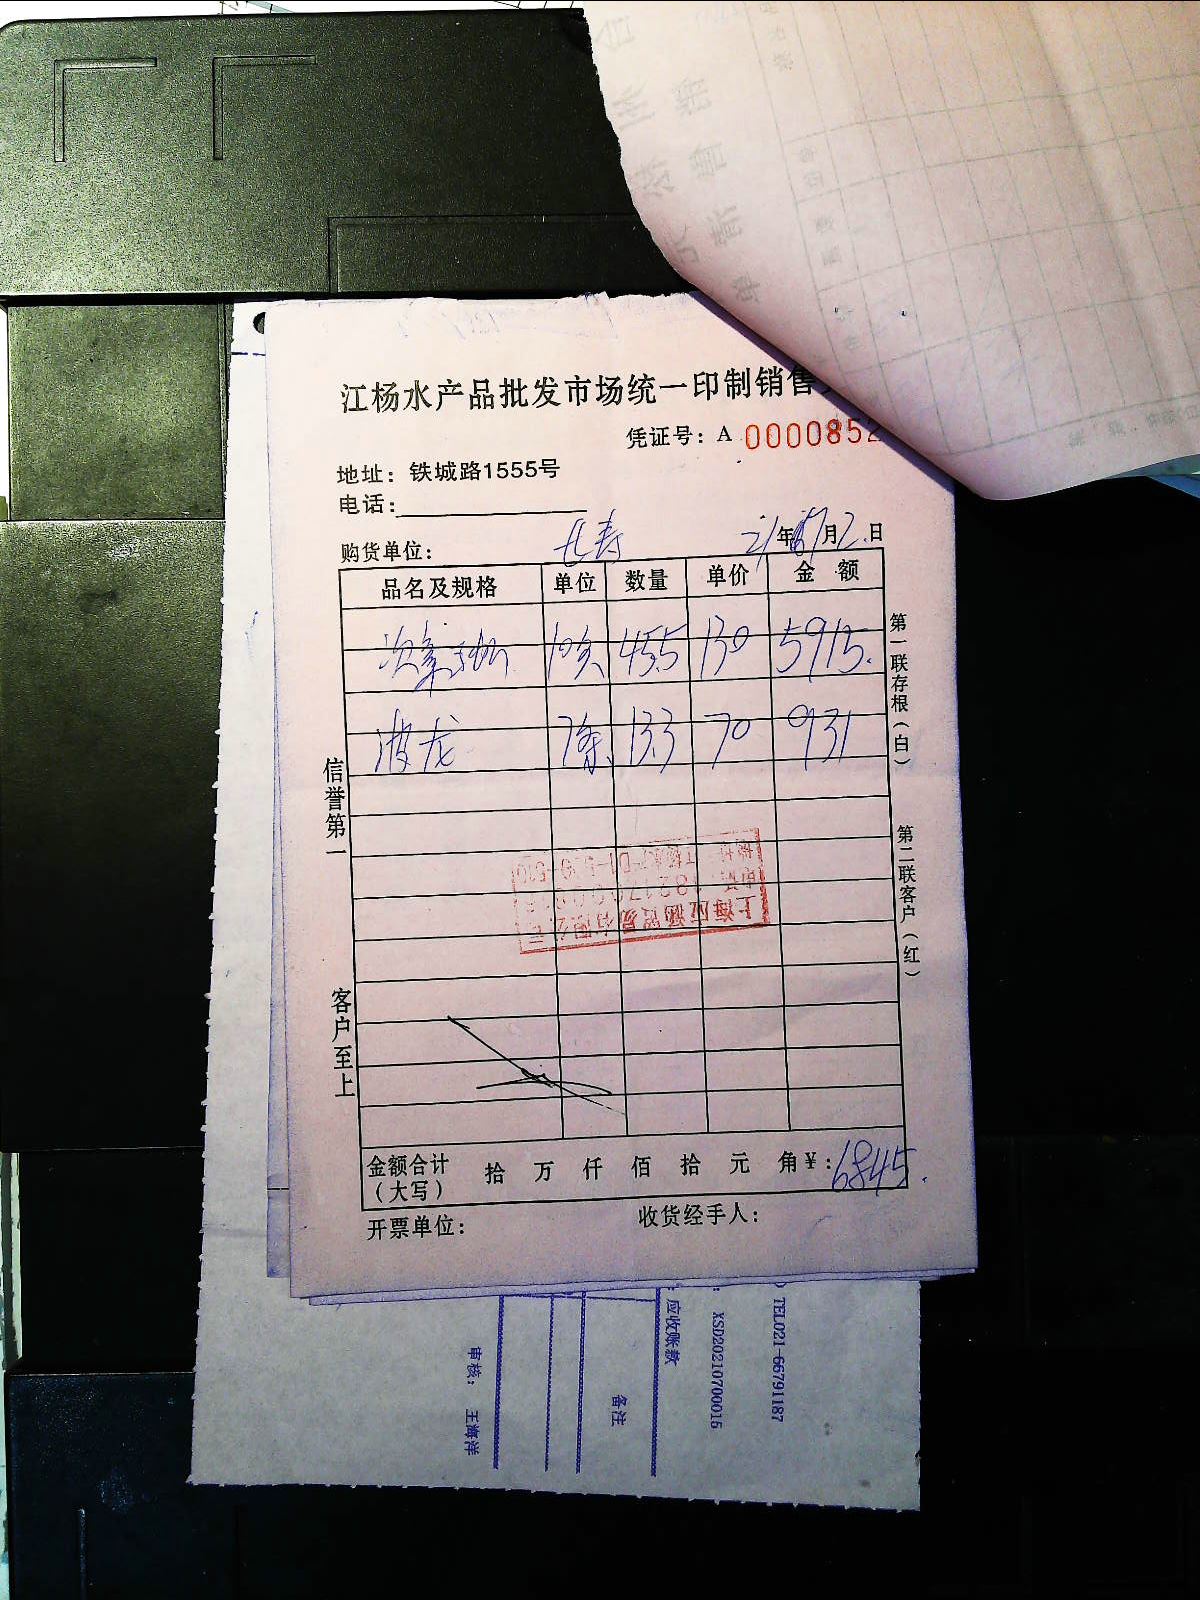 江杨水产品批发市场统一印制销售
凭证号：A 0000852
地址：铁城路1555号
电话：
购货单位：长寿 21年7月2.日
品名及规格 单位 数量 单价 金额
45.5 130 5915.
波龙 7条 13.3 70 931
信誉第一
客户至上
第一联存根（白）
第二联客户（红）
上海应 贸易有限公司
金额合计（大写） 拾 万 仟 佰 拾 元 角 ¥：6845.
开票单位：
收货经手人：
TEL021-66791187
XSD20210700015
应收账款
备注
审核： 王海洋